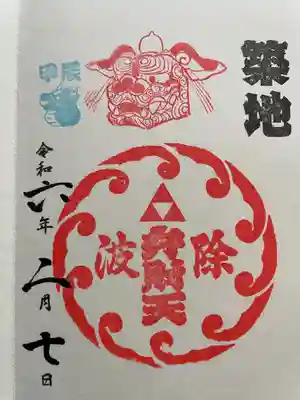 築地
甲辰
波除
弁財天
令和六年二月七日